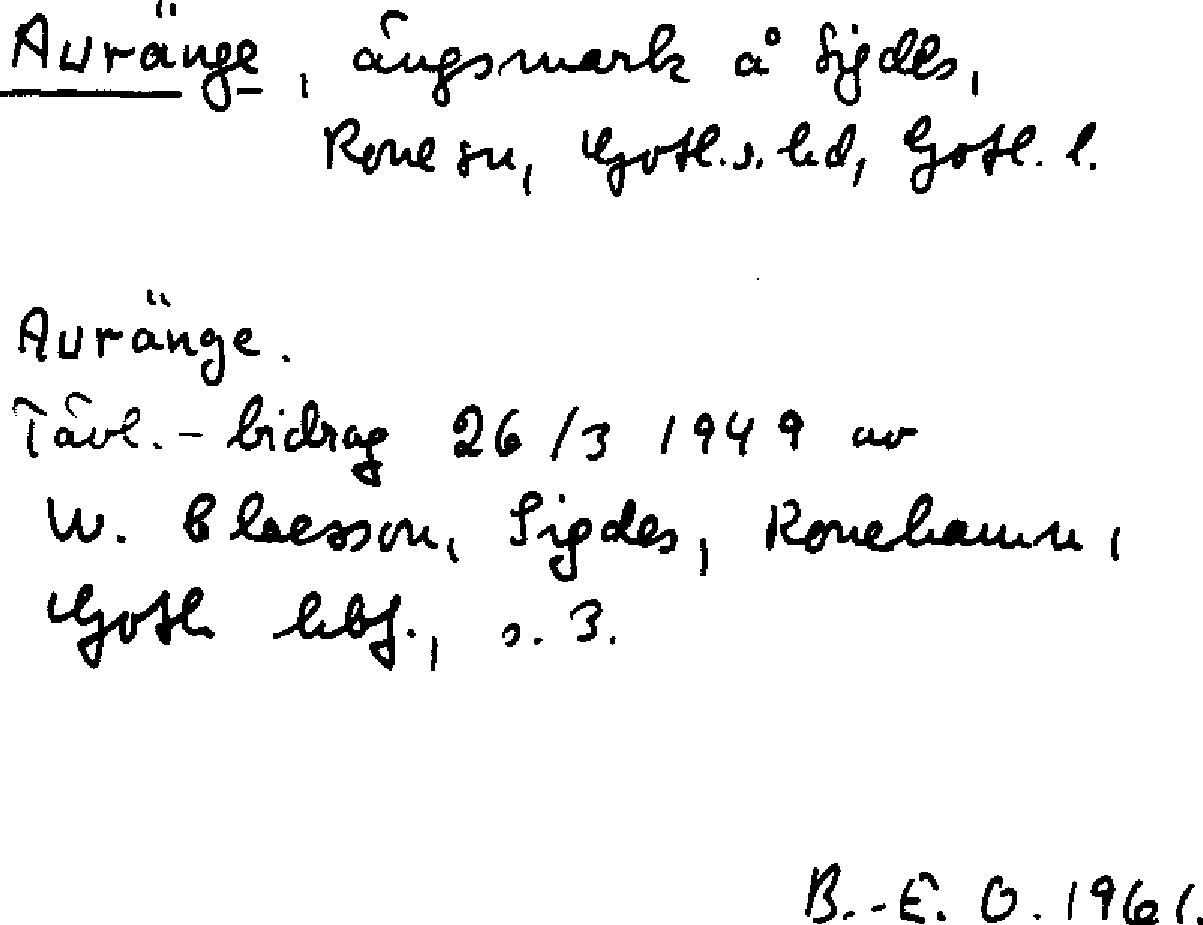 Auränge, ängsmark å Sigdes,
Rone sn, Gotl.s. hd, Gotl. l.
Auränge.
Tävl.-bidrag 26/3 1949 av
W. Claesson, Sigdes, Ronehamn,
Gotl. hbf., s. 3.
B.-E. O. 1961.